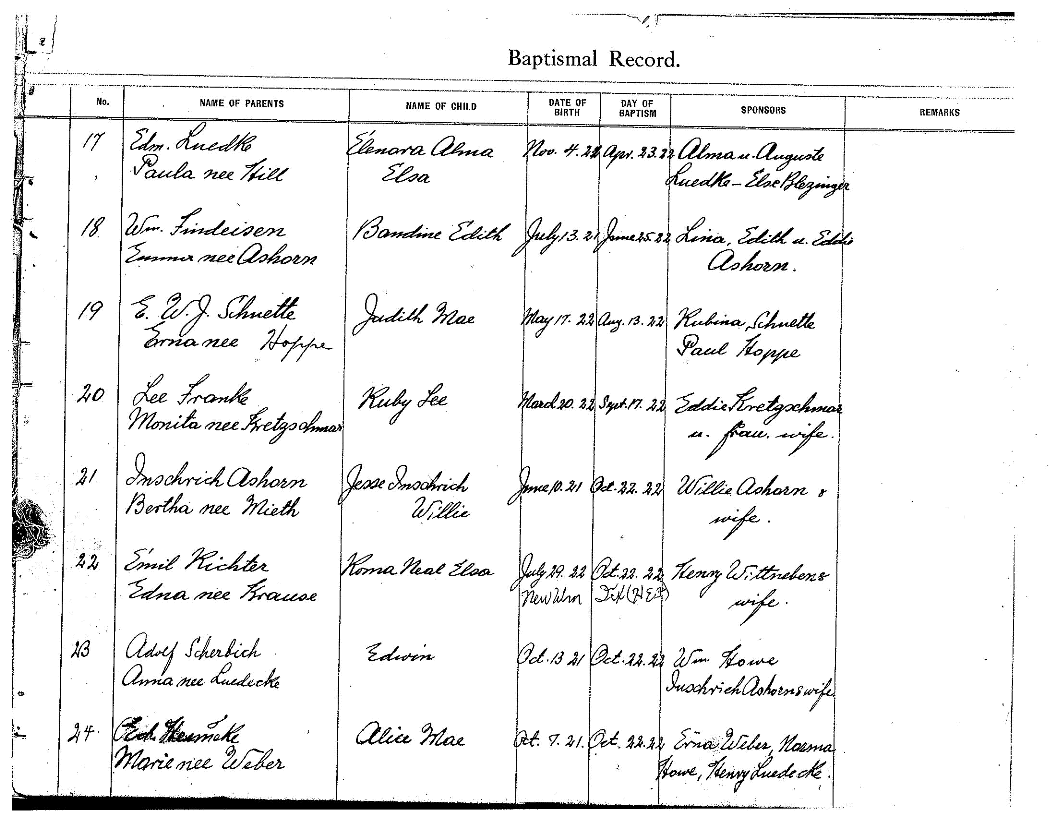 2
Baptismal Record.
No. NAME OF PARENTS NAME OF CHILD DATE OF BIRTH DAY OF BAPTISM SPONSORS REMARKS
17 Edm. Luedke Elenora Alma Nov. 4. 21 Apr. 23. 22 Alma u. Auguste
Paula nee Hill Elsa Luedke – Else Blezinger
18 Wm. Findeisen Bandine Edith July 13. 21 June 25 22 Lina, Edith u. Eddie
Emma nee Ashorn Ashorn.
19 E. W. J. Schuette Judith Mae May 17. 22 Aug. 13. 22 Rubina Schuette
Erna nee Hoppe Paul Hoppe
20 Lee Franke Ruby Lee March 20. 22 Sept. 17. 22 Eddie Kretzschmar
Monita nee Kretzschmar u. frau. wife.
21 Inschrich Ashorn Jesse Inschrich June 10. 21 Oct. 22. 22 Willie Ashorn &
Bertha nee Mieth Willie wife.
22 Emil Richter Roma Neal Elsa July 29. 22 Oct. 22. 22 Henry Wittneben &
Edna nee Krause New Ulm wife.
23 Adolf Scherbich Edwin Oct. 13 21 Oct. 22. 22 Wm Howe
Anna nee Luedecke Inschrich Ashorn & wife
24. Alice Mae Oct. 7. 21. Oct. 22. 22 Erna Weber, Norma
Marie nee Weber Howe, Henry Luedecke.